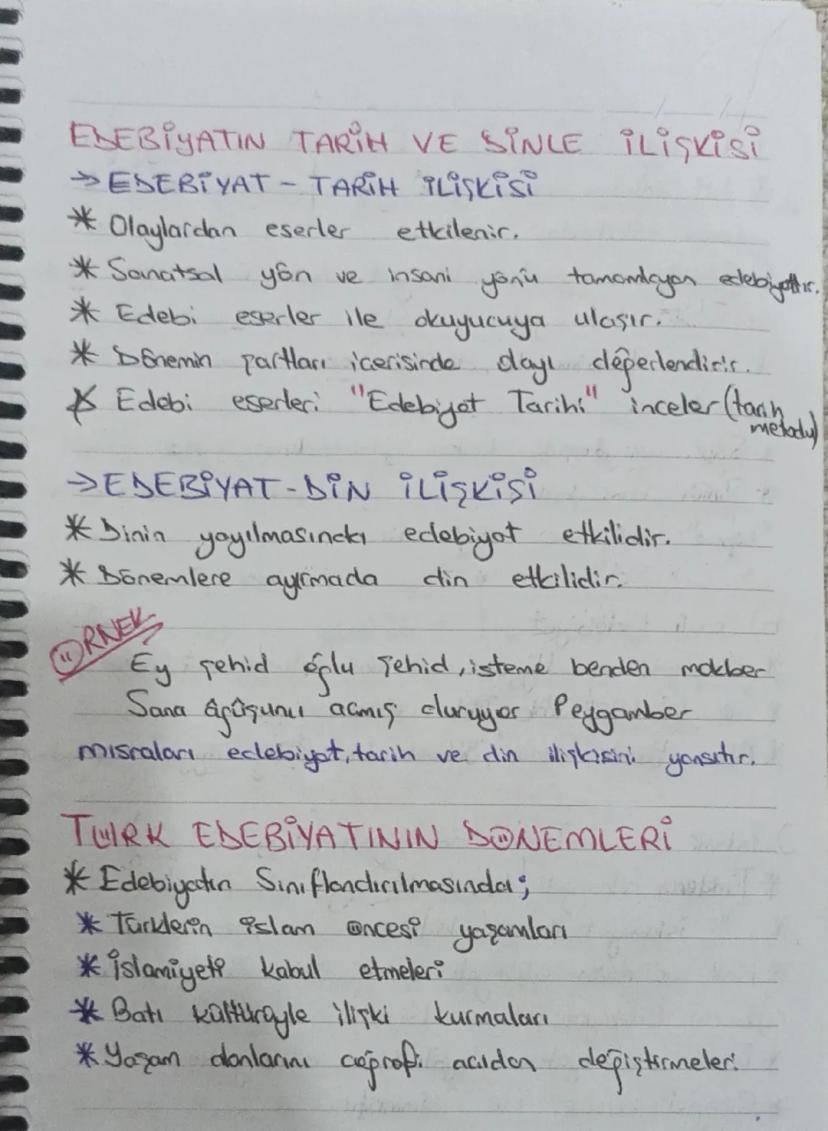 EDEBİYATIN TARİH VE DİNLE İLİŞKİSİ
→ EDEBİYAT - TARİH İLİŞKİSİ
* Olaylardan eserler etkilenir.
* Sanatsal yön ve insani yönü tamamlayan edebiyattır.
* Edebi eserler ile okuyucuya ulaşır.
* Dönemin şartları içerisinde olayı değerlendirir.
* Edebi eserleri "Edebiyat Tarihi" inceler (tarih
metodu)
→ EDEBİYAT - DİN İLİŞKİSİ
* Dinin yayılmasında edebiyat etkilidir.
* Dönemlere ayırmada din etkilidir.
ÖRNEK
Ey şehid oğlu şehid, isteme benden makber
Sana âğûşunu açmış duruyor Peygamber
mısraları edebiyat, tarih ve din ilişkisini yansıtır.
TÜRK EDEBİYATININ DÖNEMLERİ
* Edebiyatın Sınıflandırılmasında;
* Türklerin İslam öncesi yaşamları
* İslamiyeti kabul etmeleri
* Batı kültürüyle ilişki kurmaları
* Yaşam alanlarını coğrafi açıdan değiştirmeleri